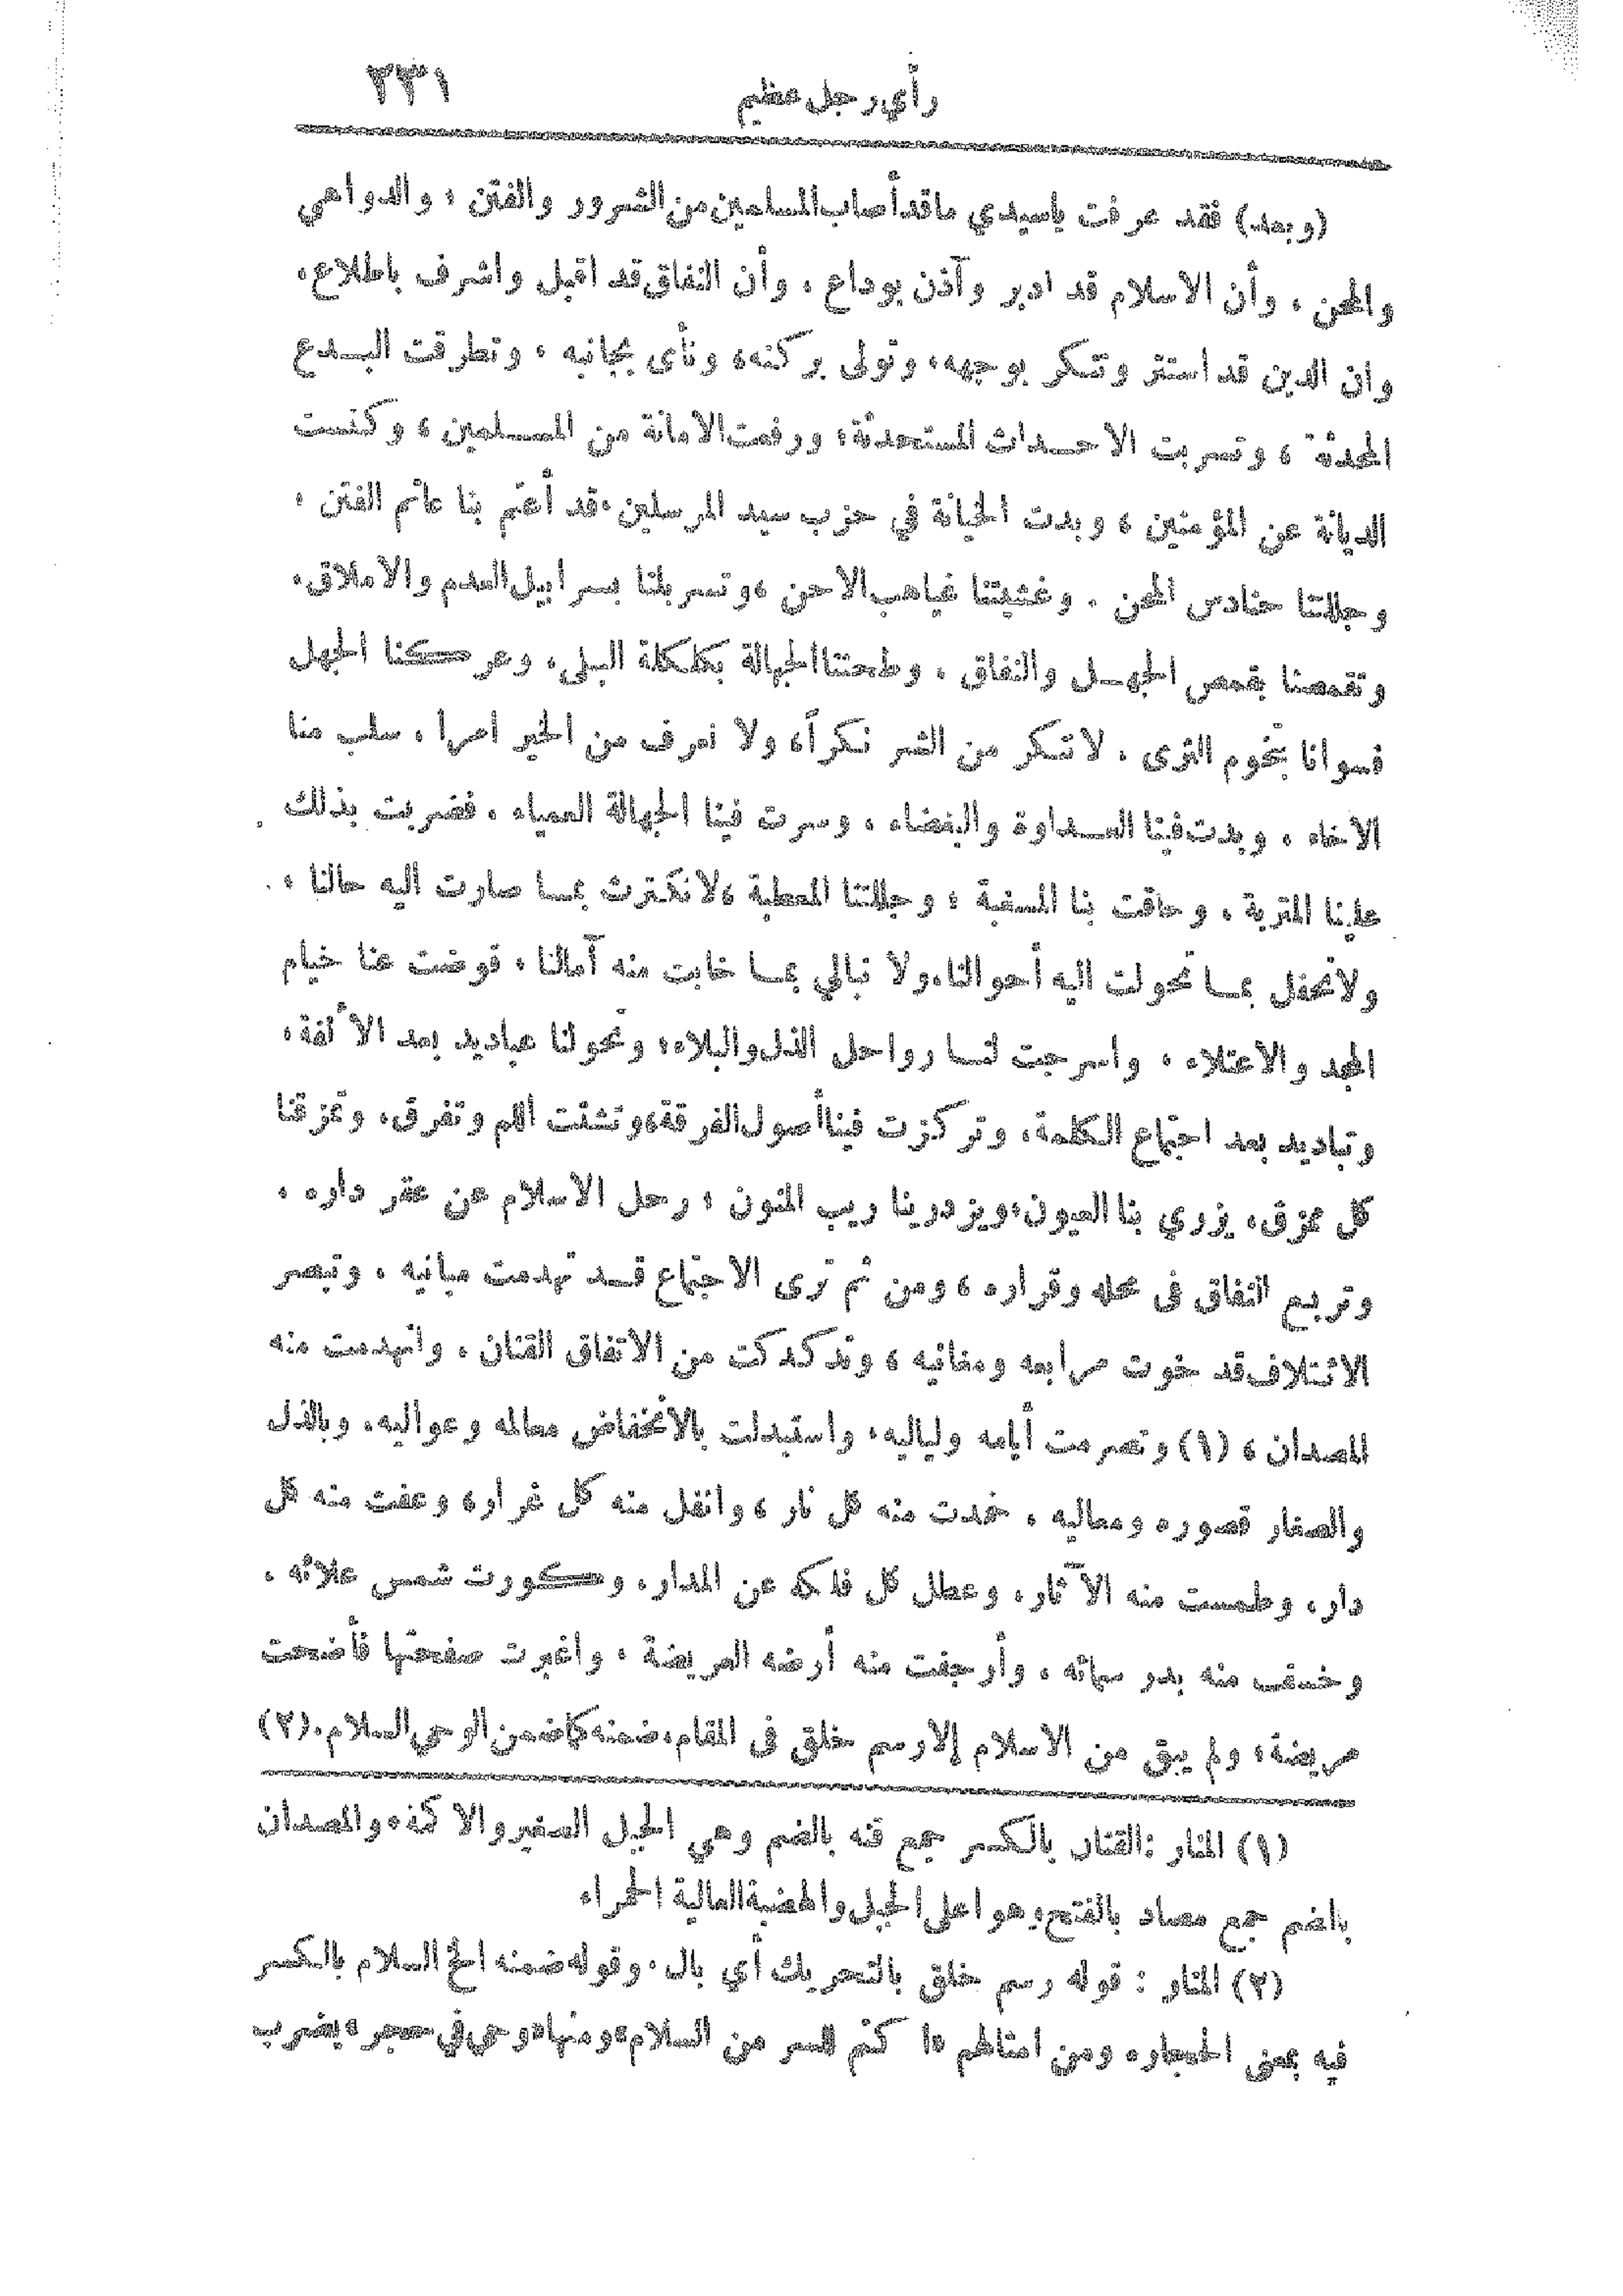 رأي رجل عظيم ٣٣١
(وبعد) فقد عرفت ياسيدي ماقد أصاب المسلمين من الشرور والفتن ، والدواهي
والمحن ، وأن الاسلام قد ادبر وآذن بوداع ، وأن النفاق قد اقبل واشرف باطلاع ،
وان الدين قد استتر وتنكر بوجهه، وتولى بركنه، ونأى بجانبه ، وتطرقت البـدع
المحدثة ، وتسربت الاحـداث المستحدثة، ورفعت الامانة من المسـلمين ، وكنست
الديانة عن المؤمنين ، وبدت الخيانة في حزب سيد المرسلين ، قد أعتم بنا عاتم الفتن ،
وجللتنا حنادس المحن . وغشيتنا غياهب الاحن ، وتسربلنا بسرابيل العدم والاملاق،
وتقمصنا بقمص الجهـل والنفاق . وطحنتنا الجهالة بكلكلة البلى، وعركنا الجهل
فسوانا بتخوم الثرى . لا تنكر من الشر نكراً، ولا نعرف من الخير امرا ، سلب منا
الاخاء ، وبدت فينا العـداوة والبغضاء ، وسرت فينا الجهالة العمياء ، فضربت بذلك
علينا المتربة ، وحاقت بنا المسغبة ؛ وجللتنا المعطبة ، لانكترث بمـا صارت اليه حالنا ،
ولانحفل بمـا تحولت اليه أحوالنا، ولا نبالي بمـا خابت منه آمالنا ، قوضت عنا خيام
المجد والاعتلاء ، واسرجت لنـا رواحل الذل والبلاء، وتحولنا عباديد بعد الألفة ،
وتباديد بعد اجتماع الكلمة، وتركزت فينا أصول الفرقة، وتشتت اللم وتفرق، وتمزقنا
كل ممزق، يزري بنا العيون، ويزدرينا ريب المنون ، رحل الاسلام عن عقر داره ،
وتربع النفاق في محله وقراره ، ومن ثم ترى الاجتماع قـد تهدمت مبانيه ، وتبصر
الائتلاف قد خوت مرابعه ومغانيه ، وتدكدكت من الاتفاق القنان ، وانهدمت منه
المصدان ، (١) وتصرمت أيامه ولياليه، واستبدلت بالانخفاض معالمه وعواليه، وبالذل
والصغار قصوره ومعاليه ، خمدت منه كل نار ، وانفل منه كل غرار، وعفت منه كل
دار، وطمست منه الآثار، وعطل كل فلكه عن المدار، وكورت شمس علائه ،
وخسف منه بدر سمائه ، وأرجفت منه أرضه العريضة ، واغبرت صفحتها فأضحت
مريضة، ولم يبق من الاسلام إلا رسم خلق في المقام، ضمنه كما ضمن الوحي السلام. (٢)
(١) المنار : القنان بالكسر جمع قنه بالضم وهي الجبل الصغير والاكنه، والمصدان
بالضم جمع مصاد بالفتح وهو اعلى الجبل والهضبة العالية الحمراء
(٢) المنار : قوله رسم خلق بالتحريك أي بال ، وقوله ضمنه الخ السلام بالكسر
فيه بمعنى الحجاره ومن امثالهم «اكتم للسر من السلام» ومنها «وحي في حجر» يضرب